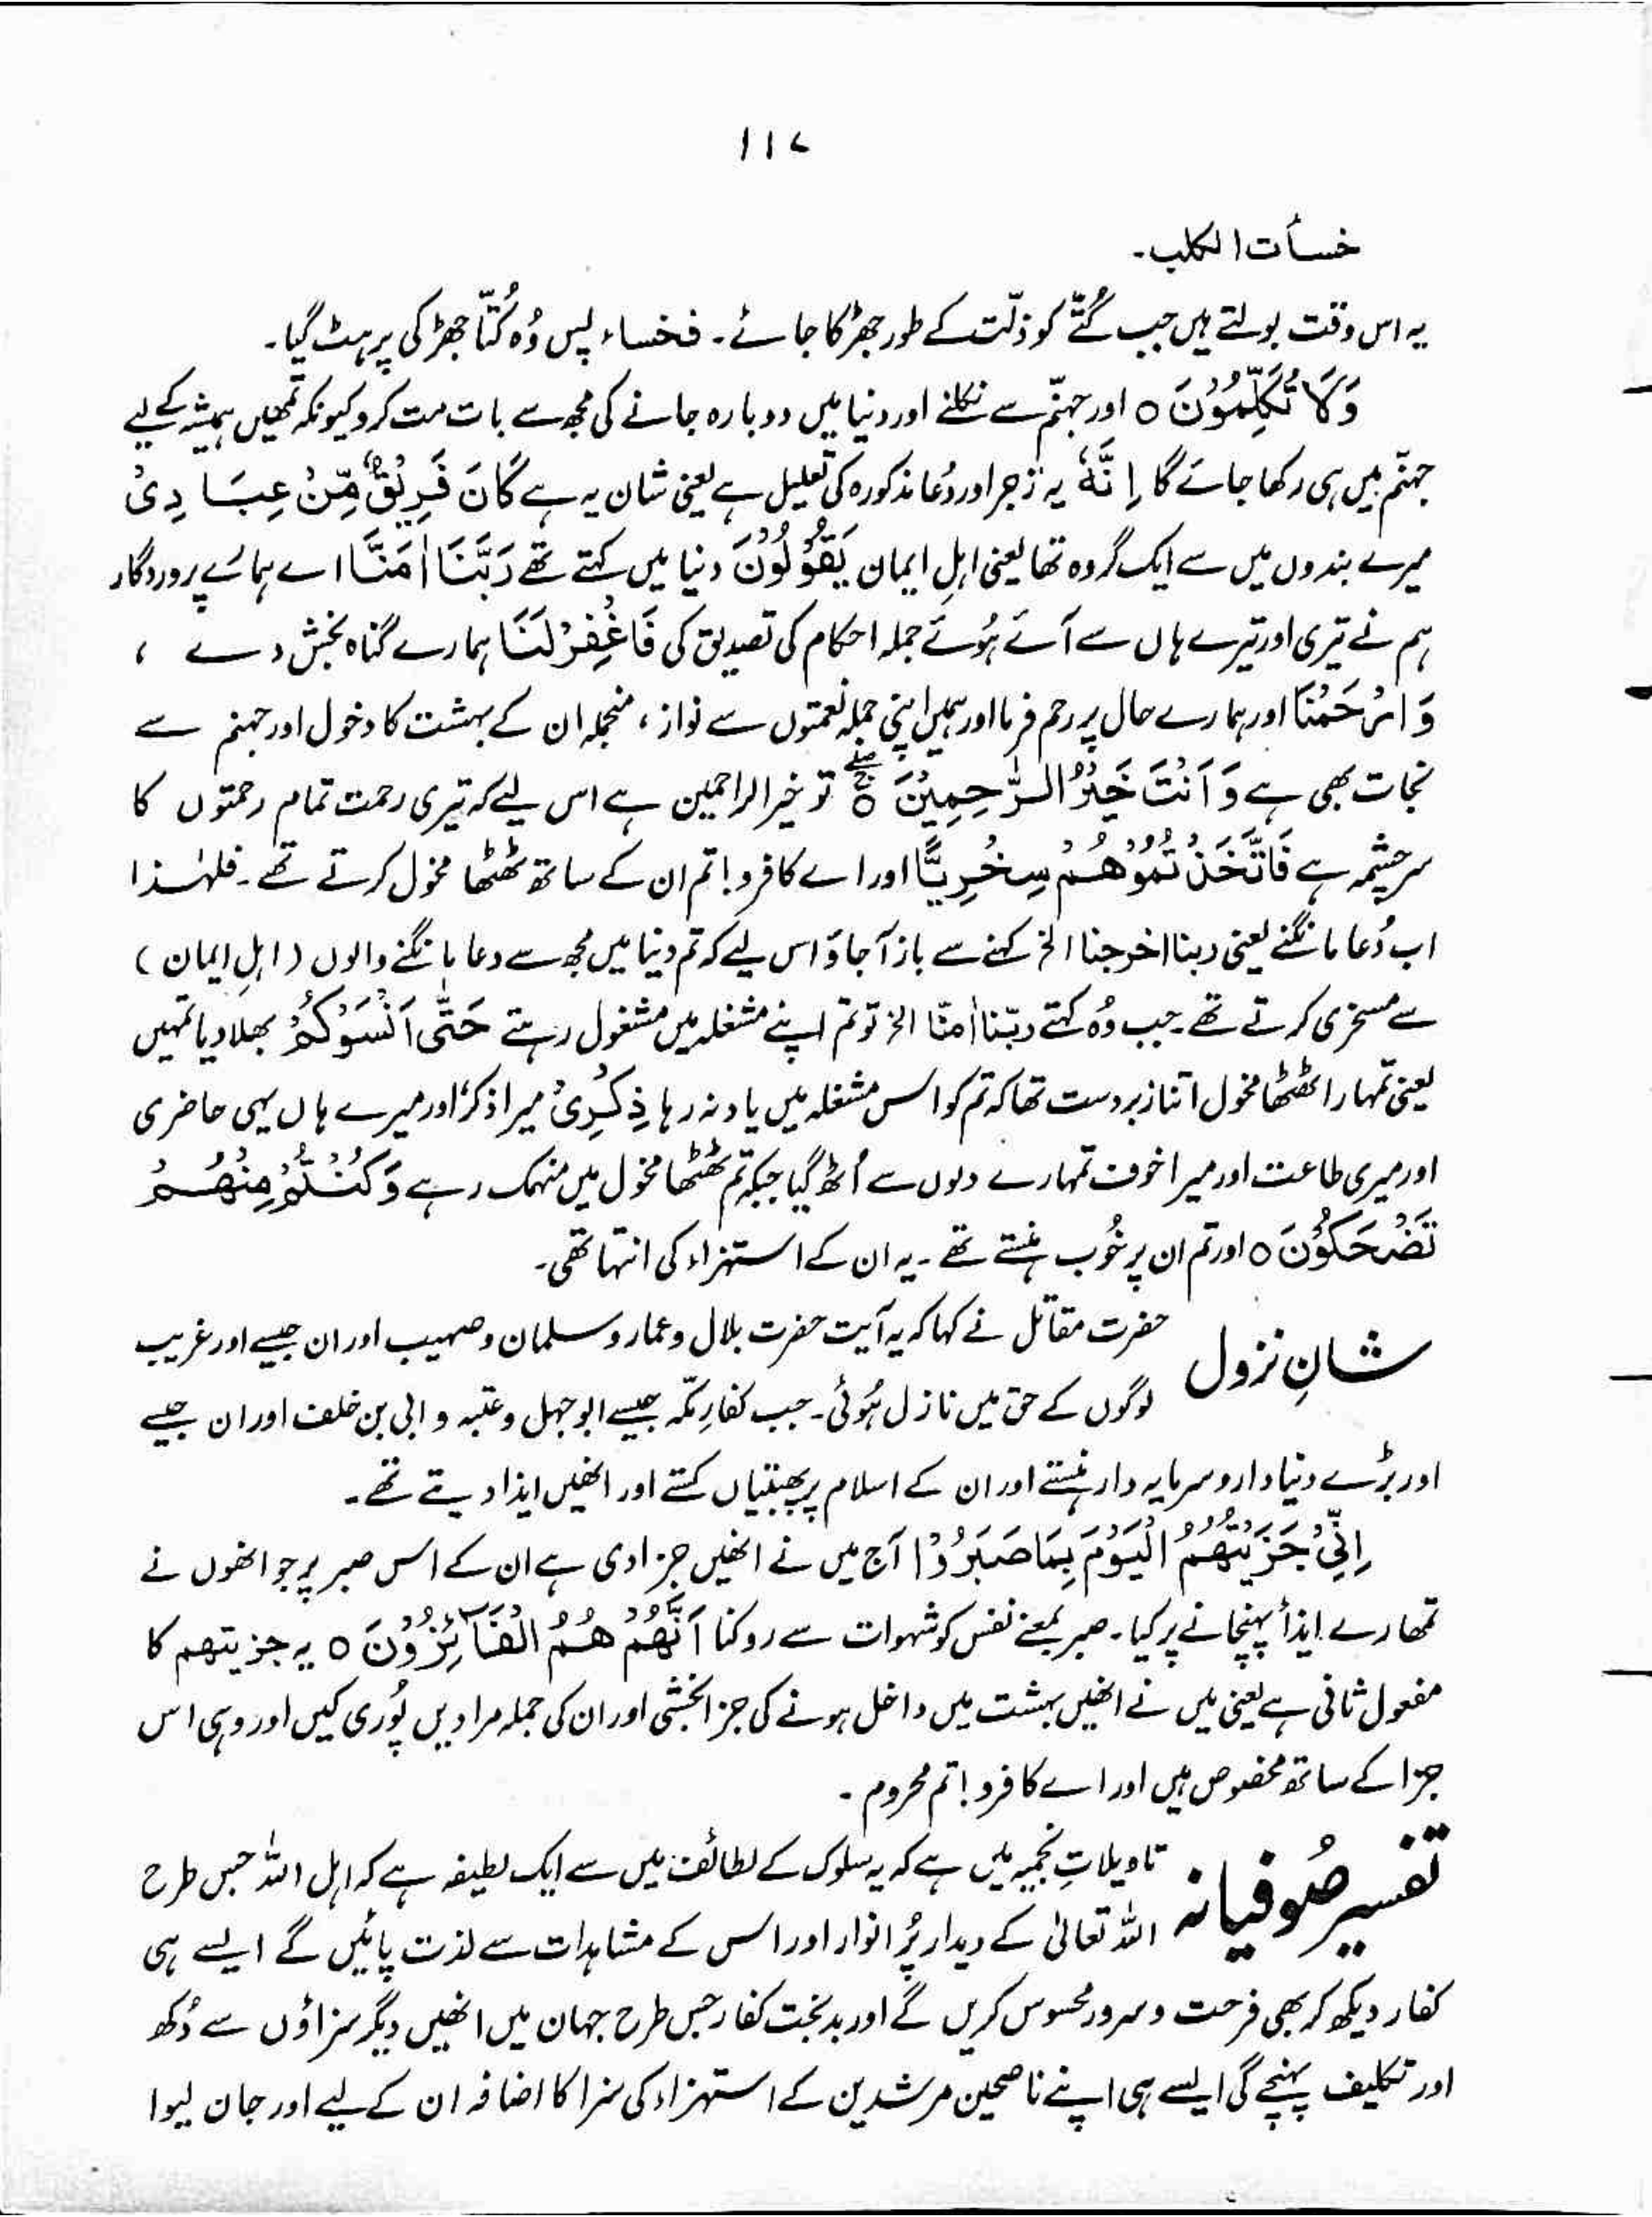 ۱۱۷
خسأت الکلب۔
یہ اس وقت بولتے ہیں جب کُتّے کو ذلّت کے طور جھڑکا جائے۔ فخساء پس وُہ کُتّا جھڑکی پر ہٹ گیا۔
وَلَا تُكَلِّمُوْنَ ○ اور جہنّم سے نکلنے اور دنیا میں دوبارہ جانے کی مجھ سے بات مت کرو کیونکہ تمھیں ہمیشہ کے لیے
جہنّم میں ہی رکھا جائے گا اِنَّهٗ یہ زجر اور دُعا مذکورہ کی تعلیل ہے یعنی شان یہ ہے كَانَ فَرِيْقٌ مِّنْ عِبَادِىْ
میرے بندوں میں سے ایک گروہ تھا یعنی اہلِ ایمان يَقُوْلُوْنَ دنیا میں کہتے تھے رَبَّنَا اٰمَنَّا اے ہمارے پروردگار
ہم نے تیری اور تیرے ہاں سے آئے ہُوئے جملہ احکام کی تصدیق کی فَاغْفِرْ لَنَا ہمارے گناہ بخش دے ،
وَارْحَمْنَا اور ہمارے حال پر رحم فرما اور ہمیں اپنی جملہ نعمتوں سے نواز ، منجملہ ان کے بہشت کا دخول اور جہنم سے
نجات بھی ہے وَاَنْتَ خَيْرُ الرّٰحِمِيْنَ ○ تو خیر الراحمین ہے اس لیے کہ تیری رحمت تمام رحمتوں کا
سرچشمہ ہے فَاتَّخَذْتُمُوْهُمْ سِخْرِيًّا اور اے کافرو! تم ان کے ساتھ ٹھٹھا مخول کرتے تھے۔ فلہٰذا
اب دُعا مانگنے یعنی ربنا اخرجنا الخ کہنے سے باز آجاؤ اس لیے کہ تم دنیا میں مجھ سے دعا مانگنے والوں (اہلِ ایمان)
سے مسخری کرتے تھے۔ جب وُہ کہتے ربّنا اٰمنّا الخ تو تم اپنے مشغلہ میں مشغول رہتے حَتّٰى اَنْسَوْكُمْ بھلا دیا تمہیں
یعنی تمہارا ٹھٹھا مخول اتنا زبردست تھا کہ تم کو اس مشغلہ میں یاد نہ رہا ذِكْرِىْ میرا ذکر اور میرے ہاں یہی حاضری
اور میری طاعت اور میرا خوف تمہارے دلوں سے اُٹھ گیا جبکہ تم ٹھٹھا مخول میں منہمک رہے وَكُنْتُمْ مِّنْهُمْ
تَضْحَكُوْنَ ○ اور تم ان پر خُوب ہنستے تھے۔ یہ ان کے استہزاء کی انتہا تھی۔
شانِ نزول حضرت مقاتل نے کہا کہ یہ آیت حضرت بلال و عمار و سلمان و صہیب اور ان جیسے اور غریب
لوگوں کے حق میں نازل ہُوئی۔ جب کفارِ مکّہ جیسے ابوجہل و عتبہ و ابی بن خلف اور ان جیسے
اور بڑے دنیا دار و سرمایہ دار ہنستے اور ان کے اسلام پر پھبتیاں کستے اور انھیں ایذا دیتے تھے۔
اِنِّىْ جَزَيْتُهُمُ الْيَوْمَ بِمَا صَبَرُوْا آج میں نے انھیں جزا دی ہے ان کے اس صبر پر جو انھوں نے
تمھارے ایذأ پہنچانے پر کیا۔ صبر بمعنے نفس کو شہوات سے روکنا اَنَّهُمْ هُمُ الْفَآئِزُوْنَ ○ یہ جزیتهم کا
مفعول ثانی ہے یعنی میں نے انھیں بہشت میں داخل ہونے کی جزا بخشی اور ان کی جملہ مرادیں پُوری کیں اور وہی اس
جزا کے ساتھ مخصوص ہیں اور اے کافرو! تم محروم۔
تفسیر صُوفیانہ تاویلاتِ نجمیہ میں ہے کہ یہ سلوک کے لطائف میں سے ایک لطیفہ ہے کہ اہل اللہ جس طرح
اللہ تعالیٰ کے دیدار پُر انوار اور اس کے مشاہدات سے لذت پائیں گے ایسے ہی
کفار دیکھ کر بھی فرحت و سرور محسوس کریں گے اور بدبخت کفار جس طرح جہان میں انھیں دیگر سزاؤں سے دُکھ
اور تکلیف پہنچے گی ایسے ہی اپنے ناصحین مرشدین کے استہزاء کی سزا کا اضافہ ان کے لیے اور جان لیوا